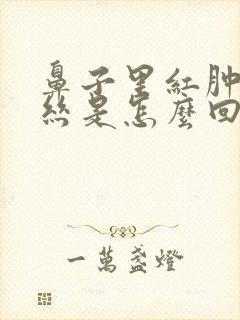 鼻子里紅肿
絲是怎麼回
一萬盞燈